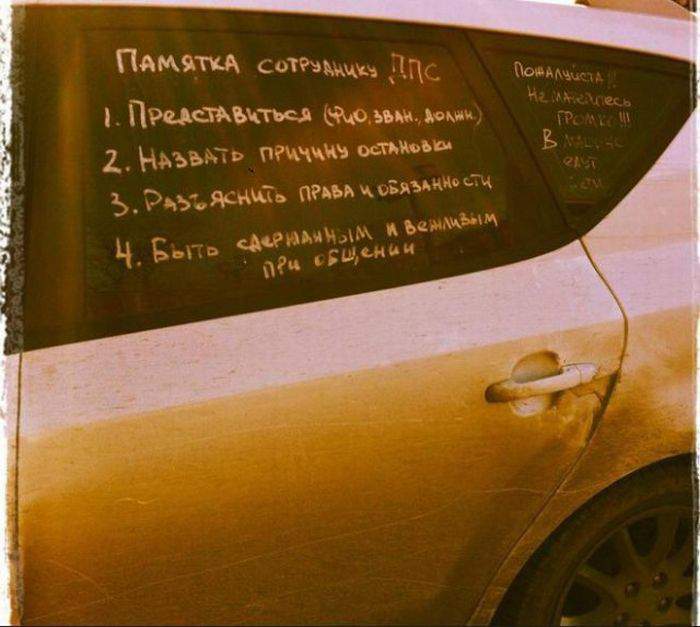 Памятка сотруднику ДПС
1. Представиться (ФИО, зван., должн.)
2. Назвать причину остановки
3. Разъяснить права и обязанности
4. Быть сдержанным и вежливым
при общении
Пожалуйста!!
Не матейтесь
громко!!!
В машине
едут
дети